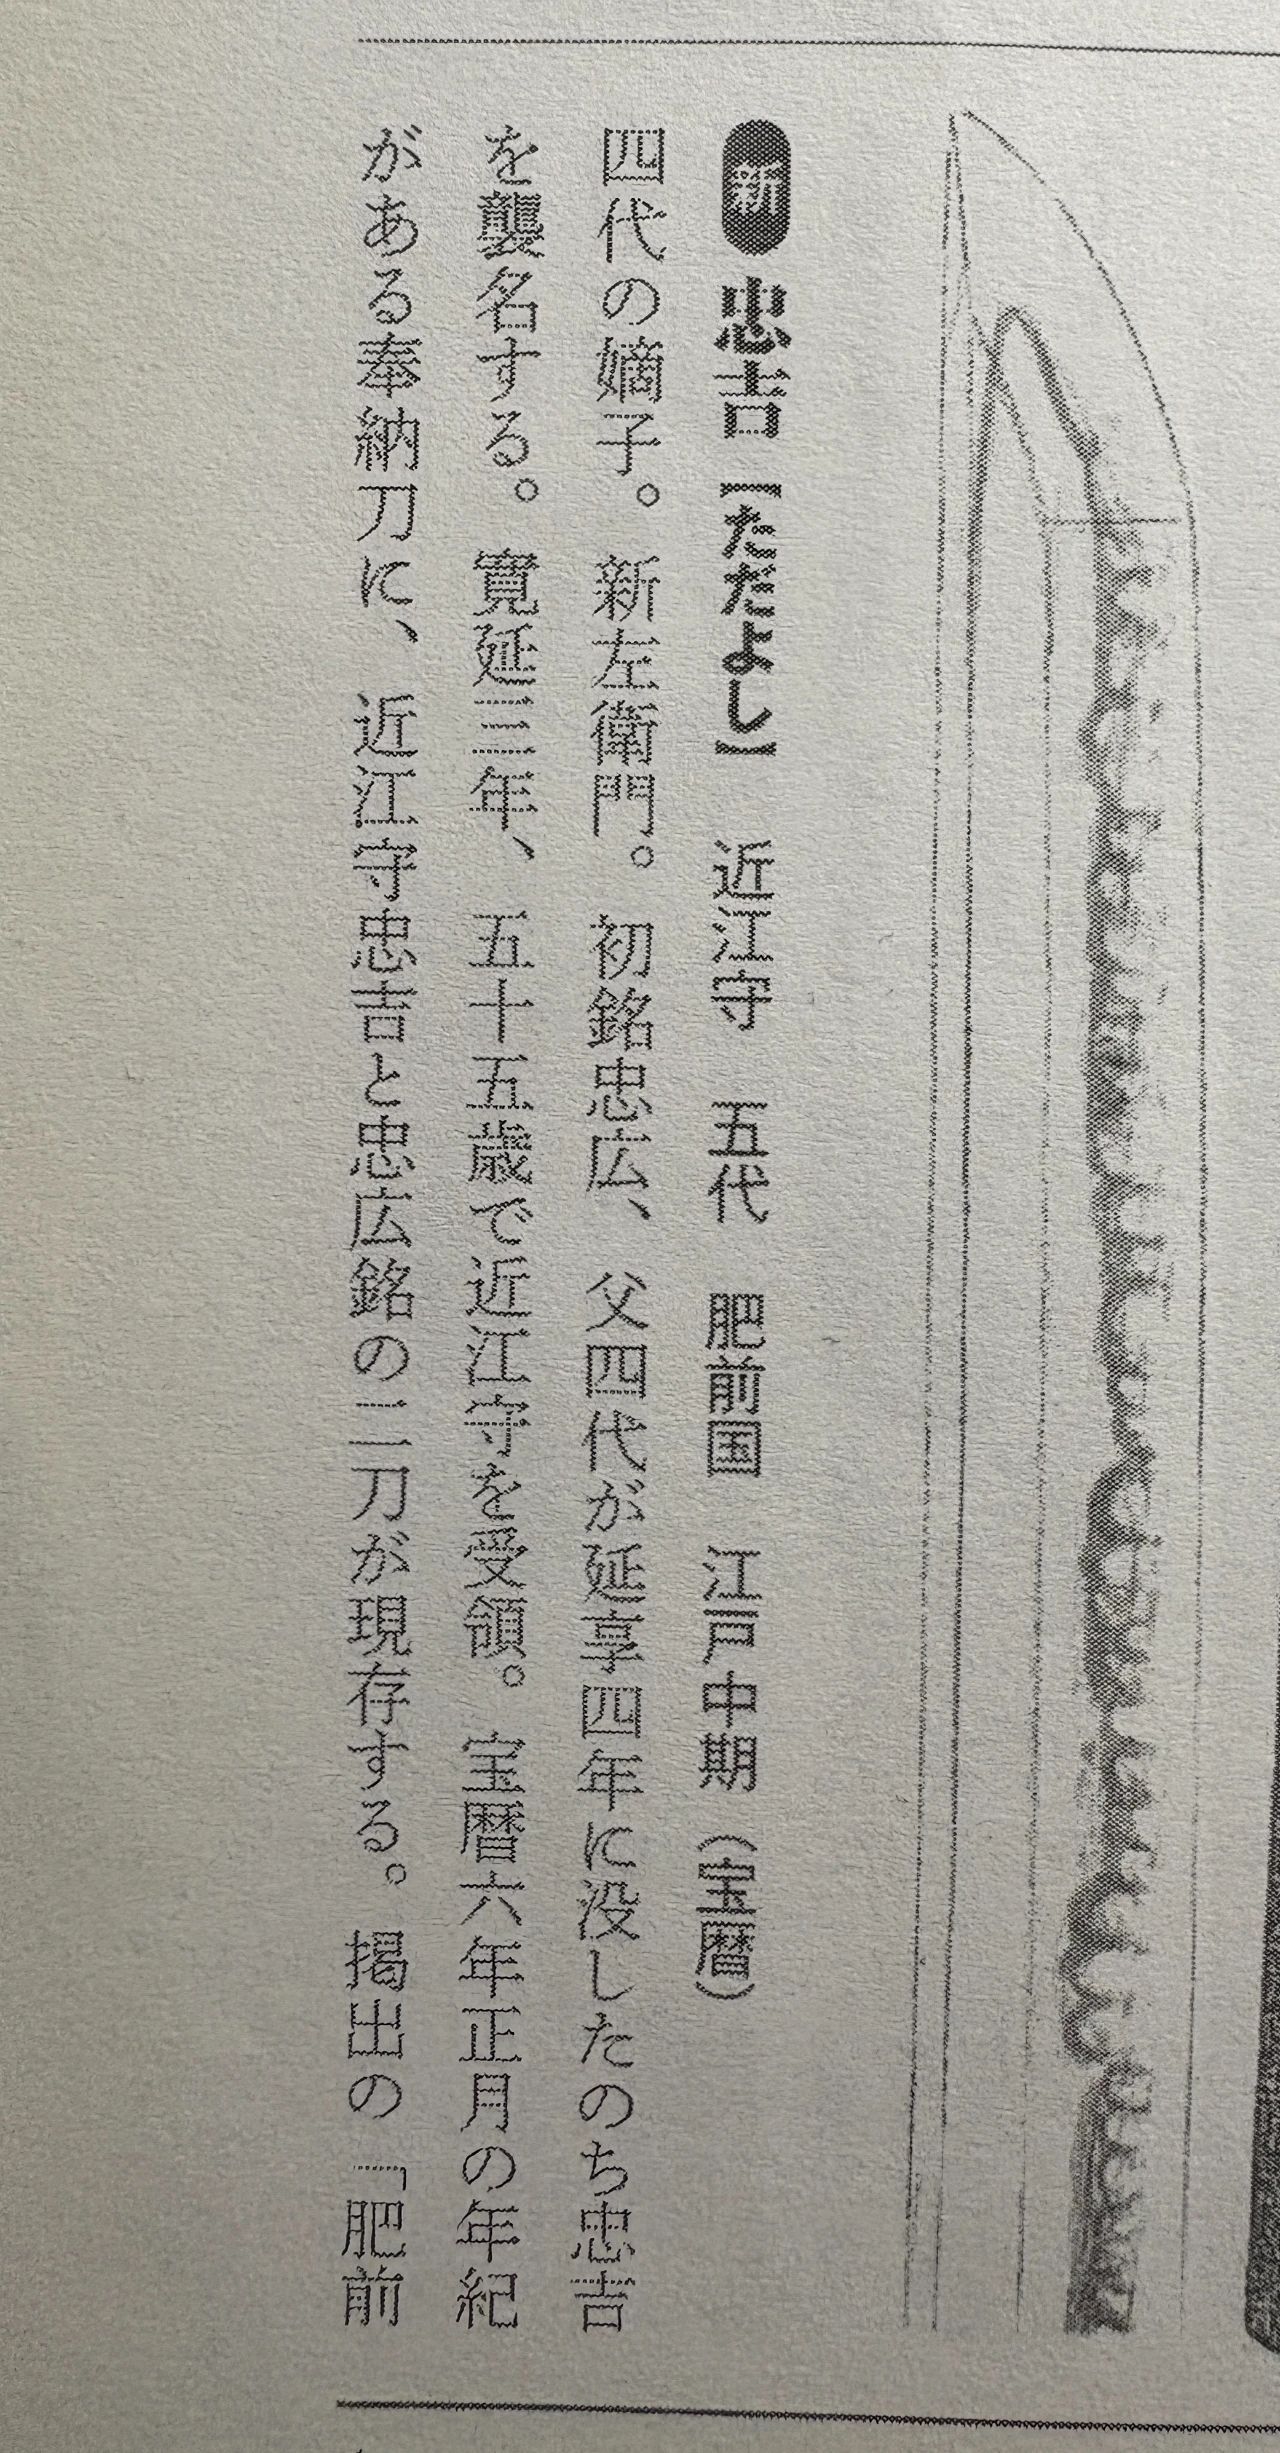 新 忠吉【ただよし】 近江守 五代 肥前国 江戸中期（宝暦）
四代の嫡子。新左衛門。初銘忠広、父四代が延享四年に没したのち忠吉
を襲名する。寛延三年、五十五歳で近江守を受領。宝暦六年正月の年紀
がある奉納刀に、近江守忠吉と忠広銘の二刀が現存する。掲出の「肥前